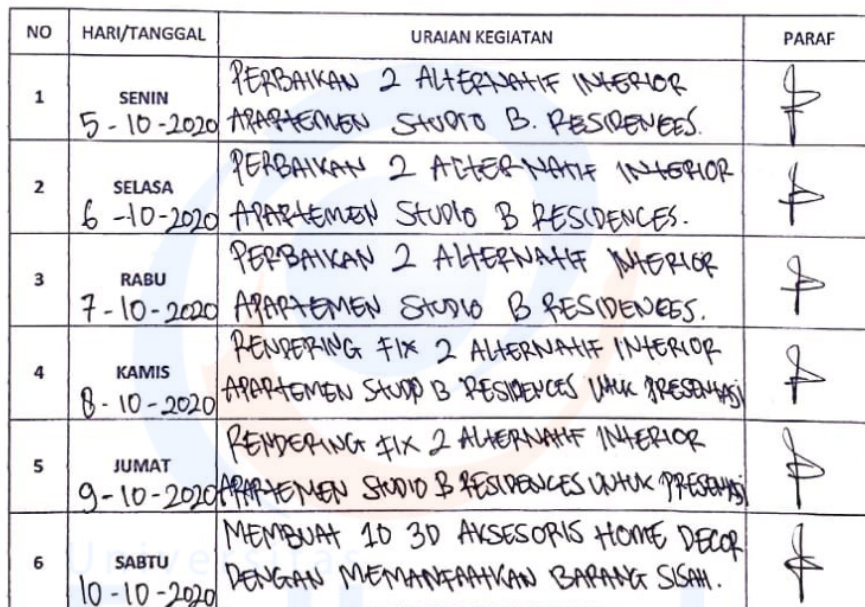 NO HARI/TANGGAL URAIAN KEGIATAN PARAF
1 SENIN PERBAIKAN 2 ALTERNATIF INTERIOR
5-10-2020 APARTEMEN STUDIO B. RESIDENCES.
2 SELASA PERBAIKAN 2 ALTERNATIF INTERIOR
6-10-2020 APARTEMEN STUDIO B RESIDENCES.
3 RABU PERBAIKAN 2 ALTERNATIF INTERIOR
7-10-2020 APARTEMEN STUDIO B RESIDENCES.
4 KAMIS RENDERING FIX 2 ALTERNATIF INTERIOR
8-10-2020 APARTEMEN STUDIO B RESIDENCES UNTUK PRESENTASI
5 JUMAT RENDERING FIX 2 ALTERNATIF INTERIOR
9-10-2020 APARTEMEN STUDIO B RESIDENCES UNTUK PRESENTASI
6 SABTU MEMBUAT 10 3D AKSESORIS HOME DECOR
10-10-2020 DENGAN MEMANFAATKAN BARANG SISAH.
Universitas